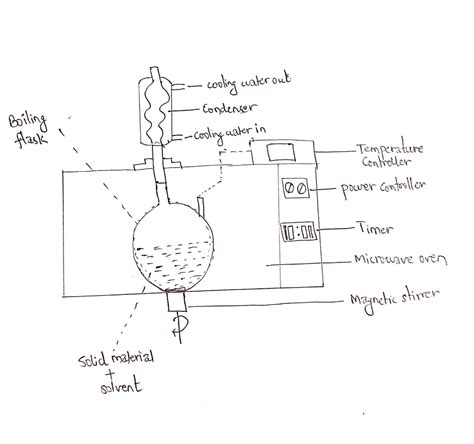 cooling water out
Condenser
cooling water in
Boiling
flask
Temperature
Controller
power controller
10:01
Timer
Microwave oven
Magnetic stirrer
Solid material
+
solvent